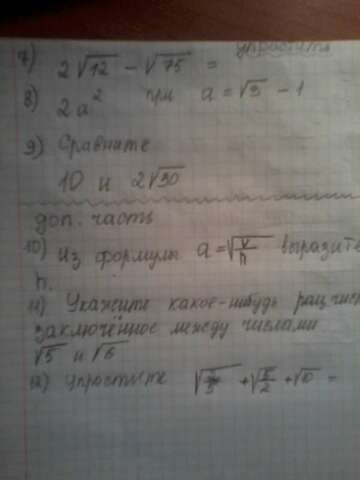 упростить
7) 2√12 - √75 =
8) 2a² при a = √3 - 1
9) Сравните
10 и 2√30
доп. часть
10) Из формулы a = √(V/h) выразите
h.
11) Укажите какое-нибудь рац числ
заключённое между числами
√5 и √6
12) Упростите + √(5/2) + √10 =